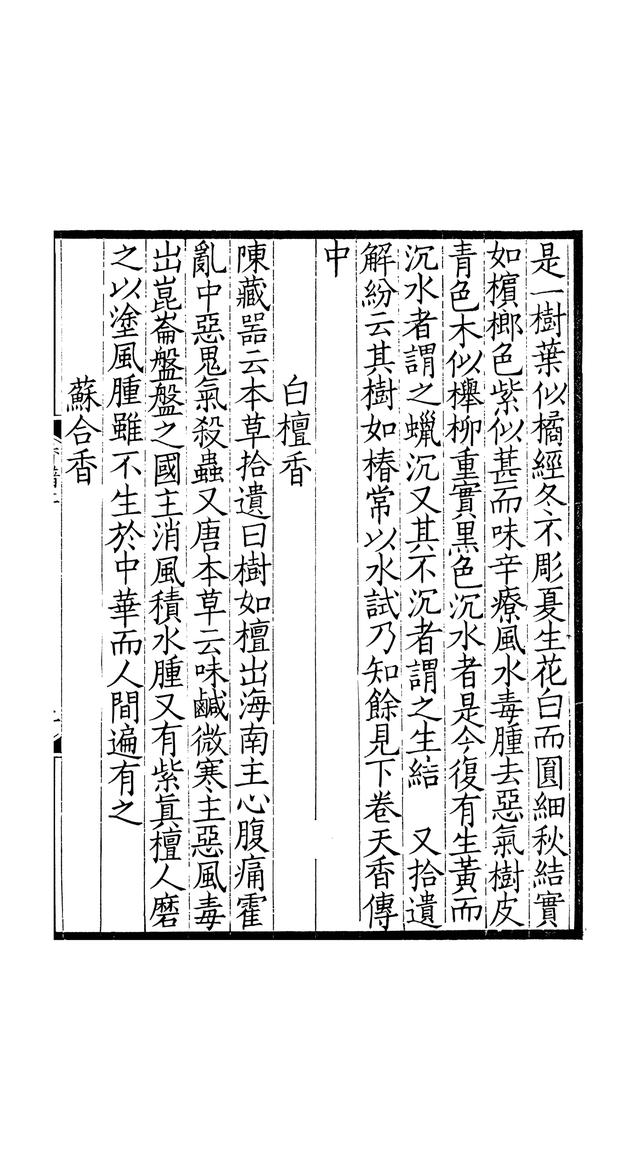 是一樹葉似橘經冬不彫夏生花白而圓細秋結實
如檳榔色紫似葚而味辛療風水毒腫去惡氣樹皮
青色木似櫸柳重實黒色沉水者是今復有生黃而
沉水者謂之蠟沉又其不沉者謂之生結　又拾遺
解紛云其樹如椿常以水試乃知餘見下卷天香傳
中
白檀香
陳藏器云本草拾遺曰樹如檀出海南主心腹痛霍
亂中惡鬼氣殺蟲又唐本草云味鹹微寒主惡風毒
出崑崙盤盤之國主消風積水腫又有紫真檀人磨
之以塗風腫雖不生於中華而人間遍有之
蘇合香